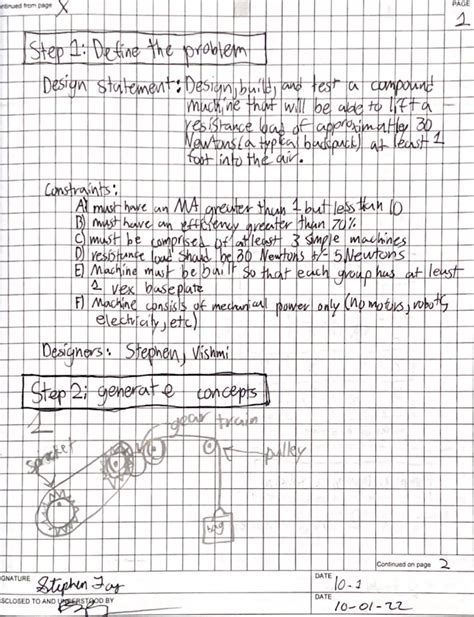 ntinued from page X
PAGE
1
Step 1: Define the problem
Design statement: Design, build, and test a compound
machine that will be able to lift a
resistance load of approximatley 30
Newtons (a typical backpack) at least 1
foot into the air.
Constraints:
A) must have an MA greater than 1 but less than 10
B) must have an efficiency greater than 70%
C) must be comprised of atleast 3 simple machines
D) resistance load should be 30 Newtons +/- 5 Newtons
E) Machine must be built so that each group has at least
1 vex baseplate
F) Machine consists of mechanical power only (no motors, robots,
electricity, etc)
Designers: Stephen, Vishmi
Step 2: generate concepts
1
gear train
sprocket
pulley
bag
Continued on page 2
GNATURE
Stephen
DATE
10-1
SCLOSED TO AND UNDERSTOOD BY
DATE
10-01-22